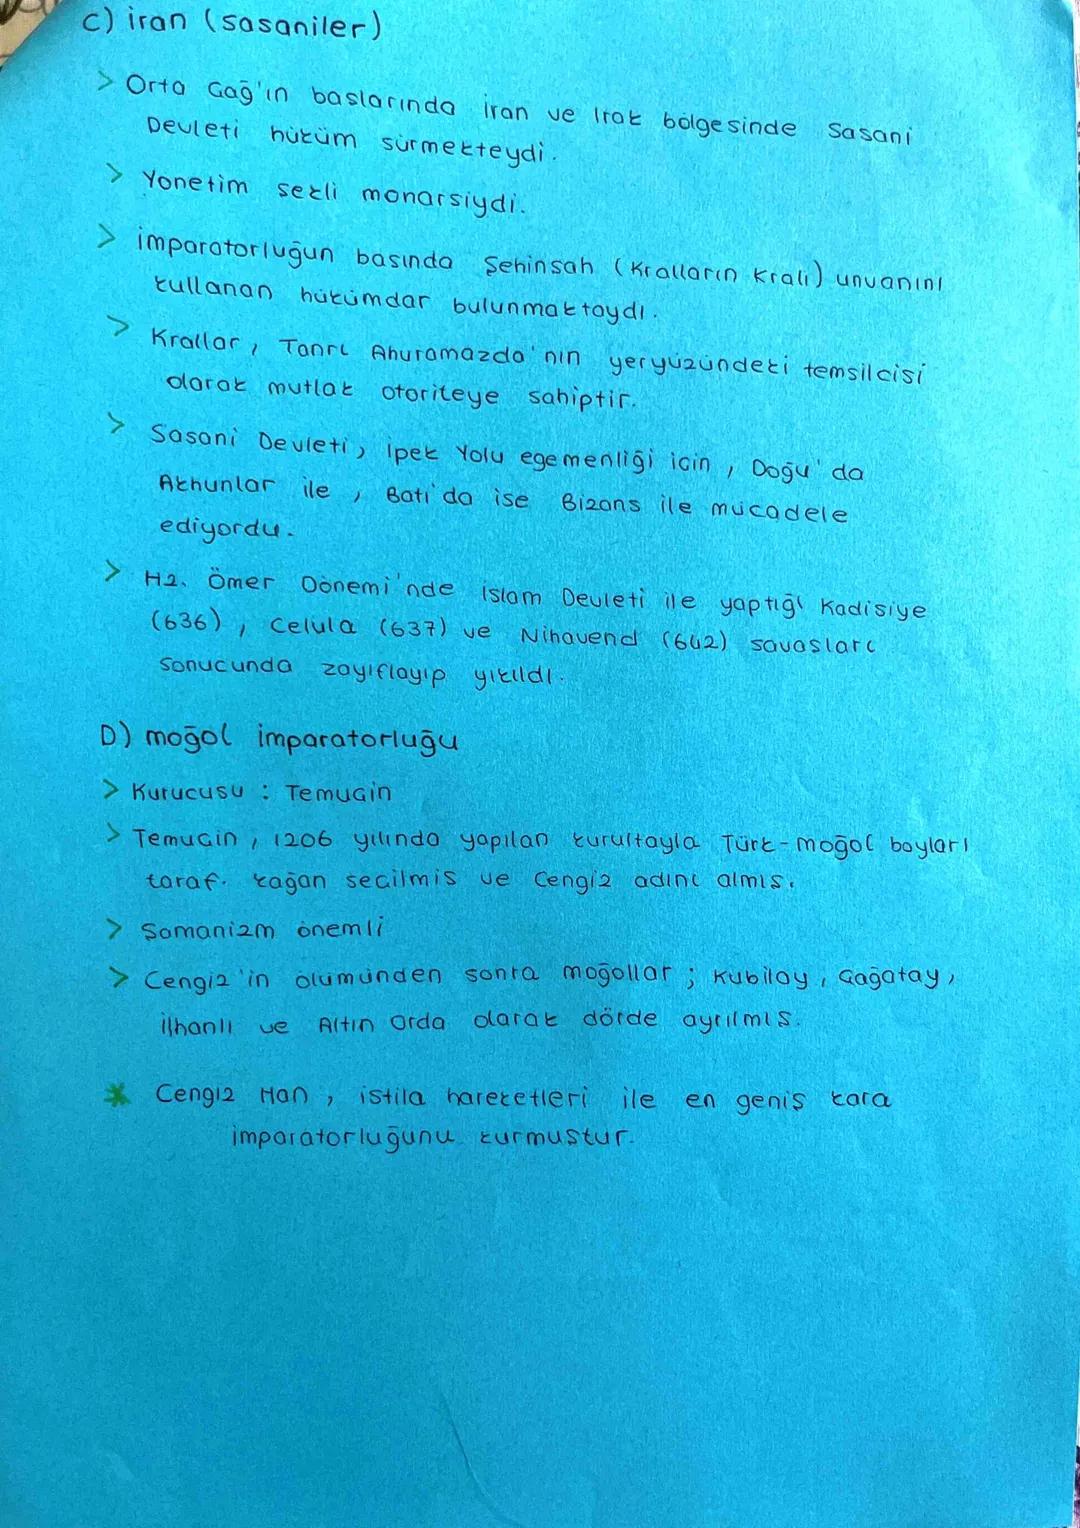 c) iran (sasaniler)
> Orta Çağ'ın baslarında iran ve Irak bölgesinde Sasani
Devleti hüküm sürmekteydi.
> Yonetim sekli monarsiydi.
> imparatorluğun basında Şehinsah (Kralların Kralı) unvanını
kullanan hükümdar bulunmaktaydı.
> Krallar, Tanrı Ahuramazda'nın yeryüzündeki temsilcisi
olarak mutlak otoriteye sahiptir.
> Sasani Devleti, ipek Yolu egemenliği icin, Doğu'da
Akhunlar ile, Batı'da ise Bizans ile mücadele
ediyordu.
> Hz. Ömer Dönemi'nde islam Devleti ile yaptığı Kadisiye
(636), Celula (637) ve Nihavend (642) savasları
sonucunda zayıflayıp yıkıldı.
D) moğol imparatorluğu
> Kurucusu : Temuçin
> Temuçin, 1206 yılında yapılan kurultayla Türk-moğol boyları
taraf. kağan secilmis ve Cengiz adını almıs.
> Şamanizm önemli
> Cengiz'in ölümünden sonra moğollar ; Kubilay, Çağatay,
ilhanlı ve Altın Orda olarak dörde ayrılmıs.
* Cengiz Han, istila hareketleri ile en geniş kara
imparatorluğunu kurmuştur.